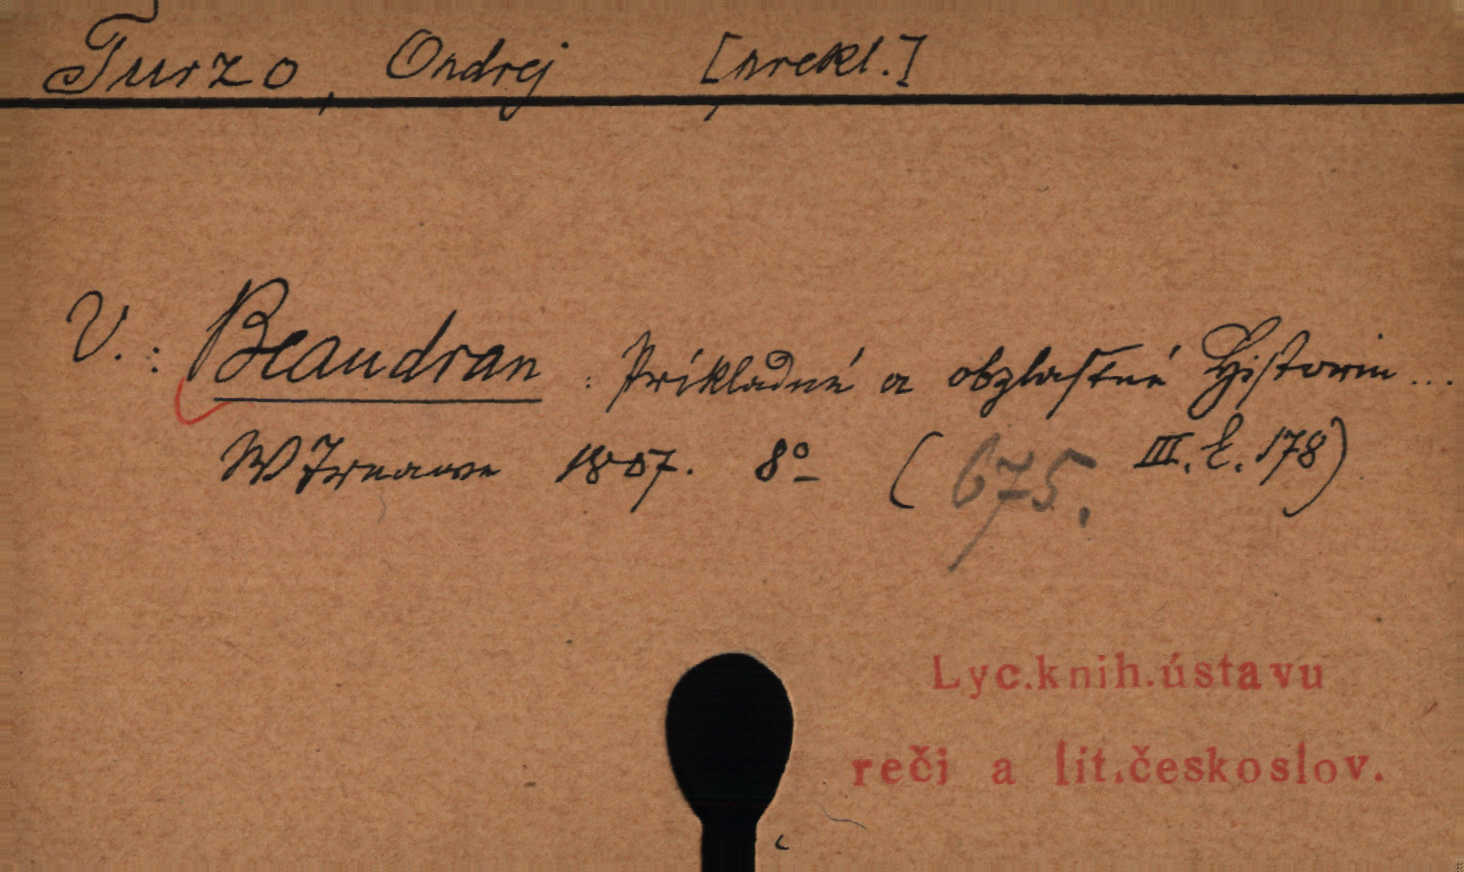 Turzo, Ondrej [prekl.]
V.: Beaudran: Príkladné a obzlaſtné Hiſtorie...
W Trnawe 1807. 8º (675. III. E. 178)
Lyc.knih.ústavu
reči a lit.českoslov.